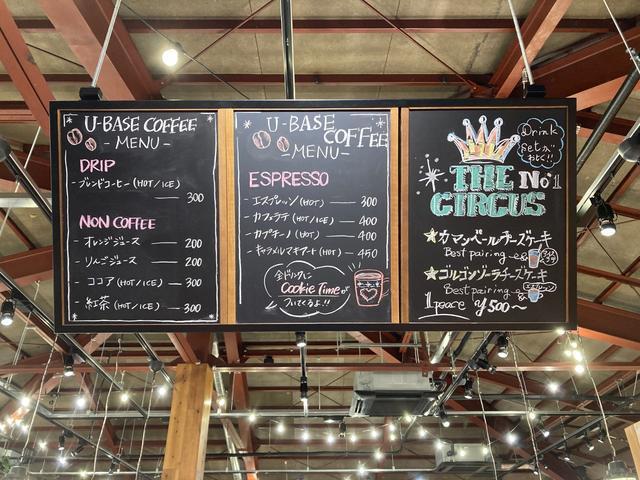 U-BASE COFFEE
- MENU -
DRIP
- ブレンドコーヒー (HOT/ICE)
— 300
NON COFFEE
- オレンジジュース — 200
- りんごジュース — 200
- ココア (HOT/ICE) — 300
- 紅茶 (HOT/ICE) — 300
U-BASE
COFFEE
- MENU -
ESPRESSO
- エスプレッソ (HOT) — 300
- カフェラテ (HOT/ICE) — 400
- カプチーノ (HOT) — 400
- キャラメルマキアート (HOT) — 450
全ドリンクに
Cookie Timeが
ついてくるよ!!
Drink
setが
おトク!!
THE No.1
CIRCUS
カマンベールチーズケーキ
Best pairing
ゴルゴンゾーラチーズケーキ
Best pairing
1peace ¥500~